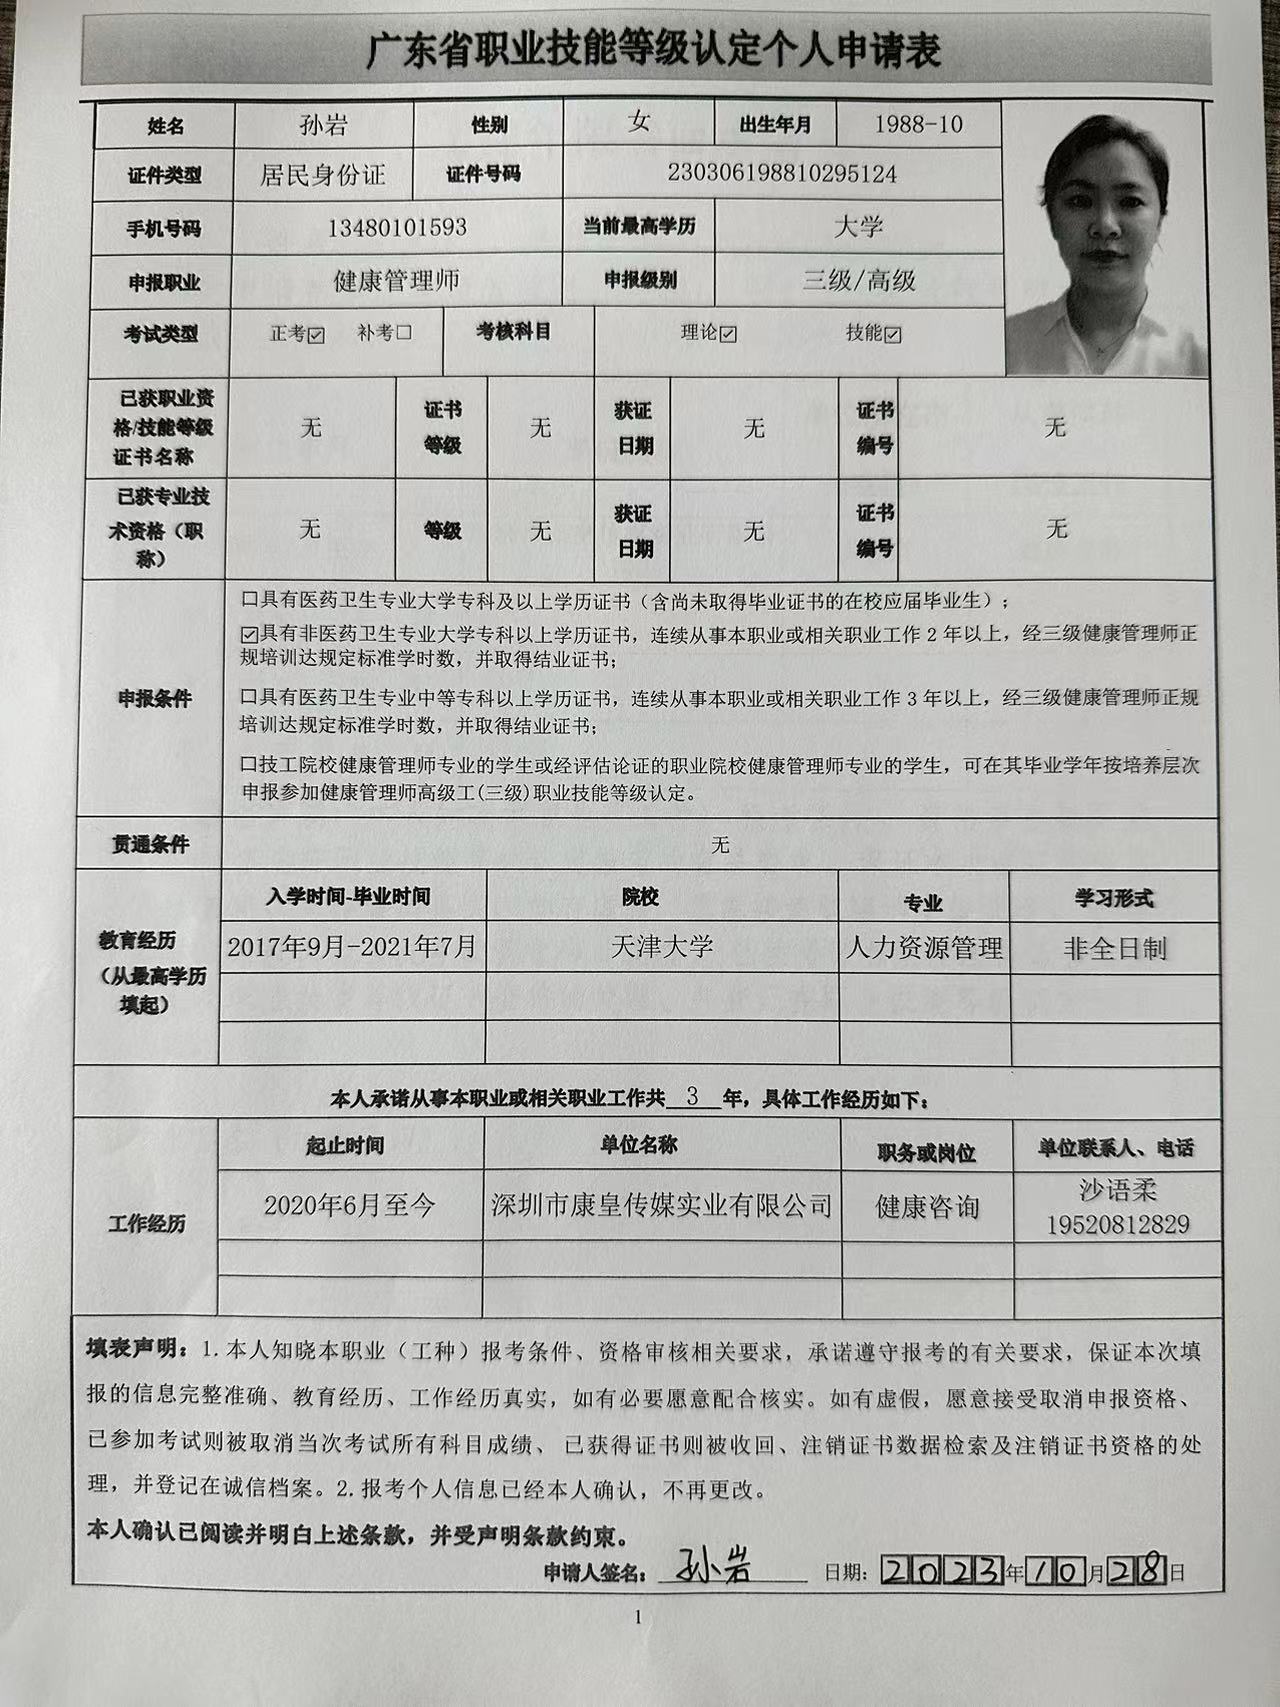 广东省职业技能等级认定个人申请表
姓名 孙岩 性别 女 出生年月 1988-10
证件类型 居民身份证 证件号码 230306198810295124
手机号码 13480101593 当前最高学历 大学
申报职业 健康管理师 申报级别 三级/高级
考试类型 正考☑ 补考☐ 考核科目 理论☑ 技能☑
已获职业资格/技能等级证书名称 无 证书等级 无 获证日期 无 证书编号 无
已获专业技术资格（职称） 无 等级 无 获证日期 无 证书编号 无
申报条件
☐具有医药卫生专业大学专科及以上学历证书（含尚未取得毕业证书的在校应届毕业生）；
☑具有非医药卫生专业大学专科以上学历证书，连续从事本职业或相关职业工作 2 年以上，经三级健康管理师正
规培训达规定标准学时数，并取得结业证书；
☐具有医药卫生专业中等专科以上学历证书，连续从事本职业或相关职业工作 3 年以上，经三级健康管理师正规
培训达规定标准学时数，并取得结业证书；
☐技工院校健康管理师专业的学生或经评估论证的职业院校健康管理师专业的学生，可在其毕业学年按培养层次
申报参加健康管理师高级工(三级)职业技能等级认定。
贯通条件 无
教育经历（从最高学历填起）
入学时间-毕业时间 院校 专业 学习形式
2017年9月-2021年7月 天津大学 人力资源管理 非全日制
本人承诺从事本职业或相关职业工作共 3 年，具体工作经历如下：
工作经历
起止时间 单位名称 职务或岗位 单位联系人、电话
2020年6月至今 深圳市康皇传媒实业有限公司 健康咨询 沙语柔
19520812829
填表声明：1.本人知晓本职业（工种）报考条件、资格审核相关要求，承诺遵守报考的有关要求，保证本次填
报的信息完整准确、教育经历、工作经历真实，如有必要愿意配合核实。如有虚假，愿意接受取消申报资格、
已参加考试则被取消当次考试所有科目成绩、已获得证书则被收回、注销证书数据检索及注销证书资格的处
理，并登记在诚信档案。2.报考个人信息已经本人确认，不再更改。
本人确认已阅读并明白上述条款，并受声明条款约束。
申请人签名：孙岩 日期：2023年10月28日
1